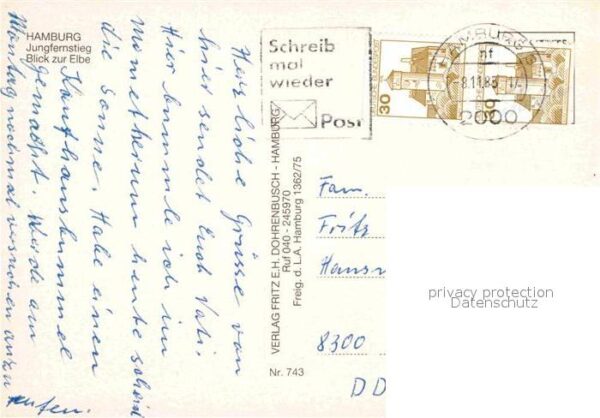 HAMBURG
Jungfernstieg
Blick zur Elbe
Herzliche Grüsse von
hier sendet Euch Vati.
Hier bummle ich im
heute scheint
die Sonne. Habe einen
Kaufhausbummel
gemacht. Werde am
Montag nochmal versuchen anzu
rufen.
VERLAG FRITZ E.H. DOHRENBUSCH - HAMBURG
Ruf 040 - 245970
Freig. d. L.A. Hamburg 1362/75
Nr. 743
Schreib
mal
wieder
Post
30
30
HAMBURG
nf
-8.11.83
2000
Fam.
Fritz
8300
DD
privacy protection
Datenschutz